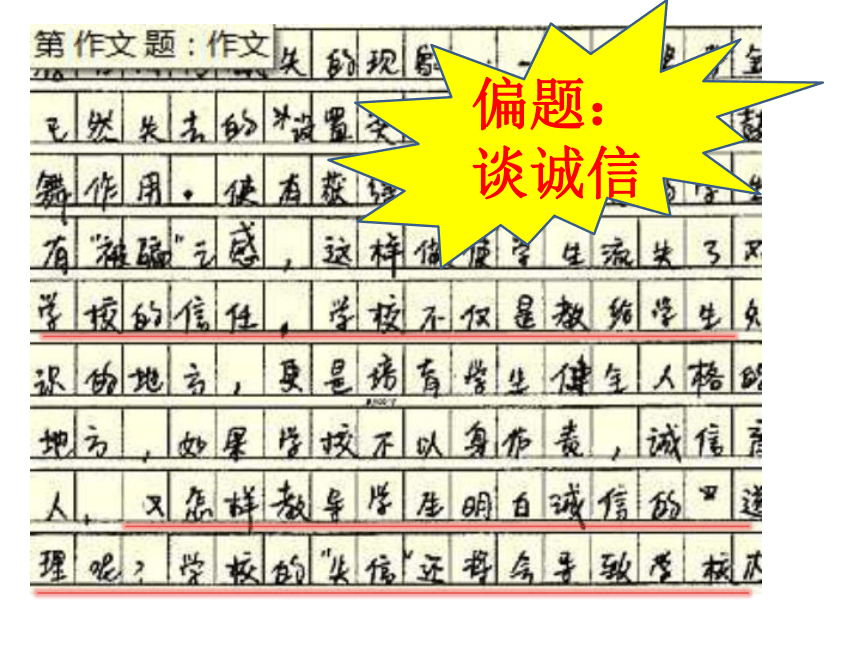 第 作文 题：作文
失的现
偏题：
谈诚信
已然失去的"设置奖
舞作用。使有获
有"被骗"之感，这样做使学生流失了对
学校的信任，学校不仅是教给学生知
识的地方，更是培育学生健全人格的
地方，如果学校不以身作责，诚信育
人，又怎样教导学生明白诚信的 道
理呢？学校的"失信"还将会导致学校